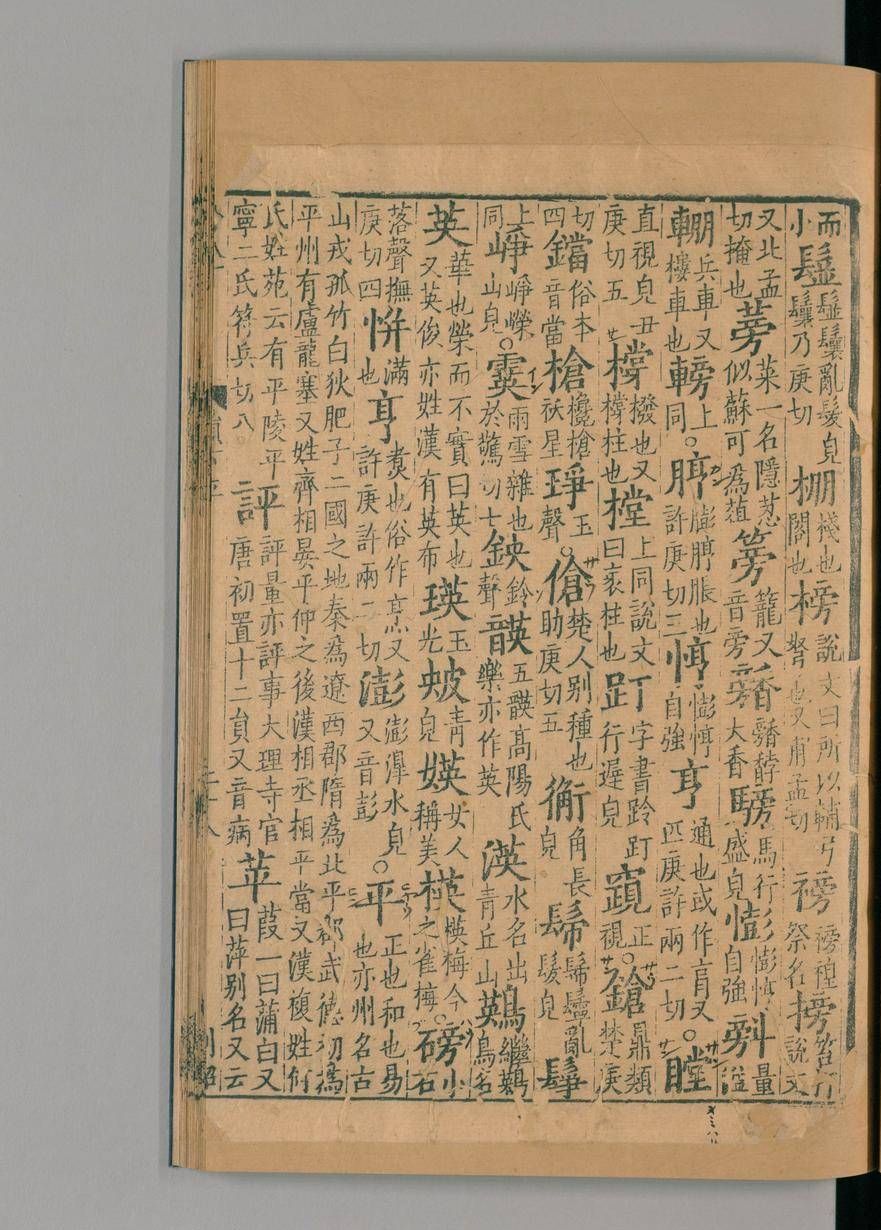 而小鬡鬡鬤亂髮皃鬤乃庚切棚棧也閣也榜說文曰所以輔弓弩也又甫孟切祭名搒笞打說文
又北孟切掩也蒡菜一名隱荵似蘇可為葅篣籠又音旁馞大香騯馬行盛皃憉憉悙自強量溢
輣兵車又樓車也上同○脝膨脝脹也許庚切三悙憉悙自強亨通也或作亯又匹庚許兩二切○瞠
直視皃丑庚切五橕撥也又橕柱也樘上同說文曰衺柱也字書行遲皃竀正視○鎗鼎類楚庚
切四鐺俗本音當槍欃槍祅星琤玉聲○傖楚人別種也助庚切五角長皃鬇鬡亂髮皃
上同崢崢嶸山皃○霙雨雪雜也於驚切七鉠鈴聲韺五韺高陽氏樂亦作英渶水名出青丘山鶧繼鶧鳥名
英華也榮而不實曰英也又英俊亦姓漢有英布瑛玉光青皃媖女人稱美楧楧梅今之雀梅○磅小石
落聲撫庚切四恲滿也亨煑也俗作烹又許庚許兩二切澎澎濞水皃又音彭○平正也和也易也亦州名古
山戎孤竹白狄肥子二國之地秦為遼西郡隋為北平郡武德初為平州有盧龍塞又姓齊相晏平仲之後漢相丞相平當又漢複姓何
氏姓苑云有平陵平寧二氏符兵切八評評量亦評事大理寺官唐初置十二員又音病苹葭一曰蒲白又曰萍別名又云